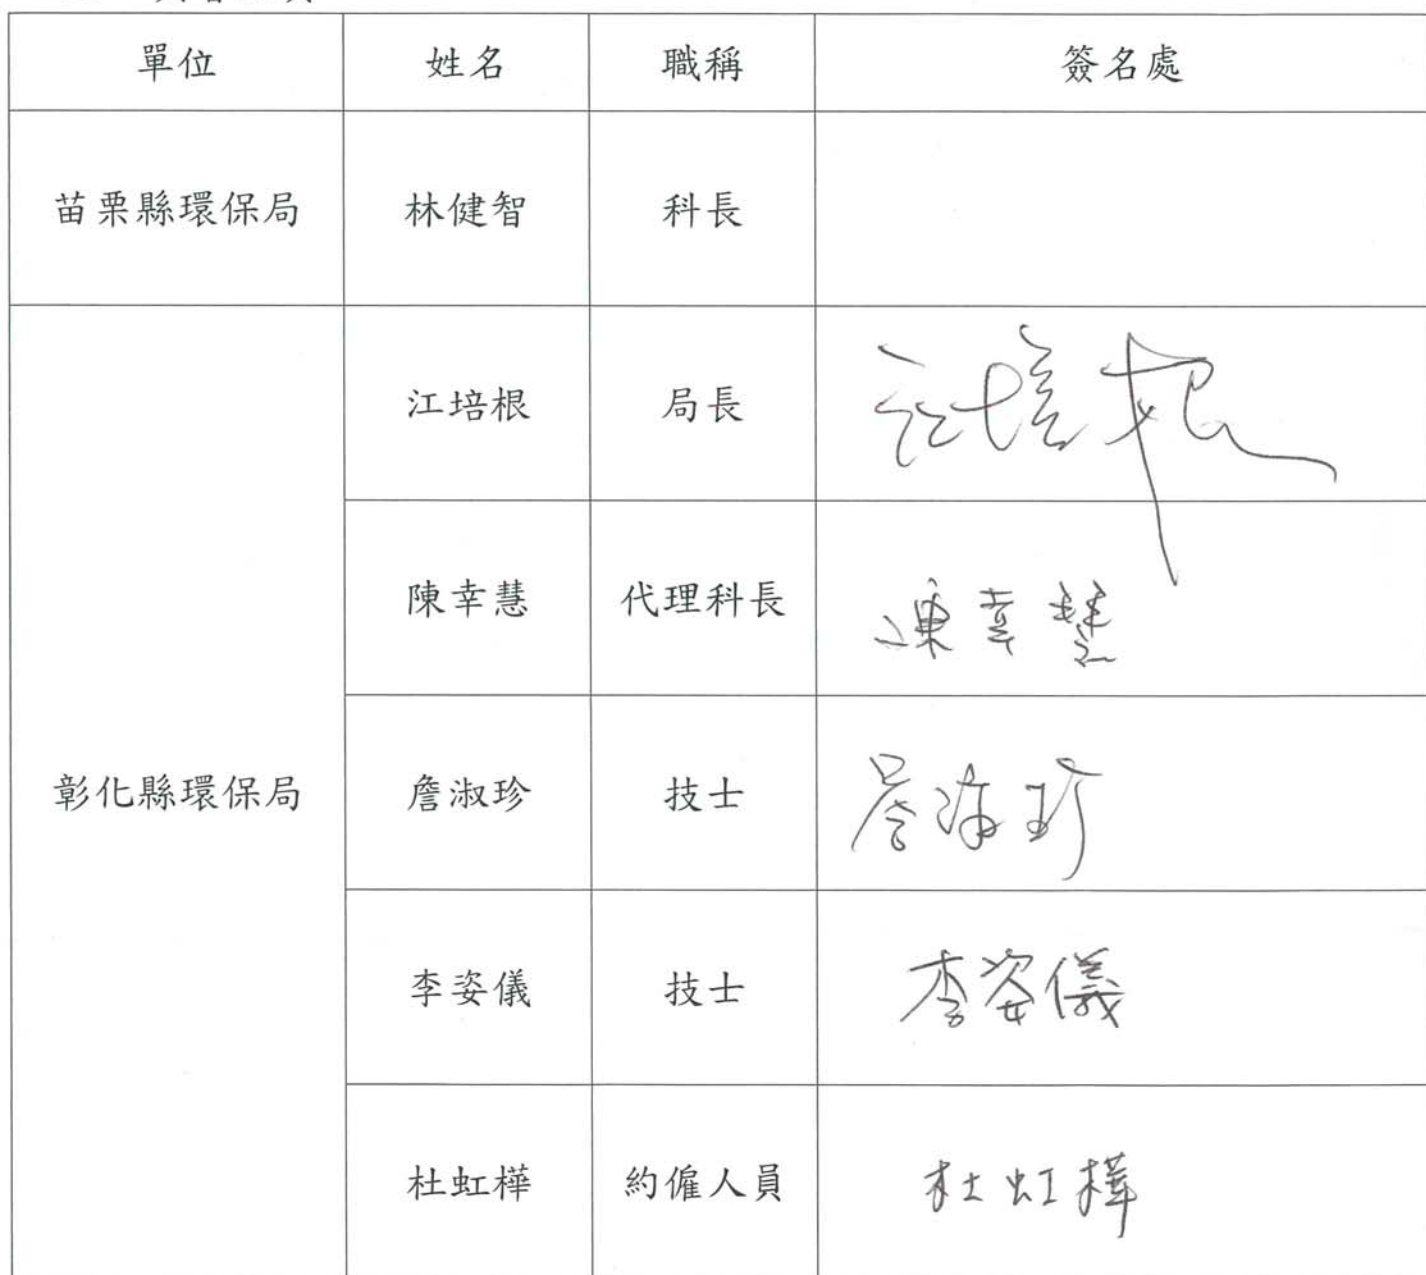 單位 姓名 職稱 簽名處
苗栗縣環保局 林健智 科長
江培根 局長 江培根
陳幸慧 代理科長 陳幸慧
彰化縣環保局 詹淑珍 技士 詹淑珍
李姿儀 技士 李姿儀
杜虹樺 約僱人員 杜虹樺